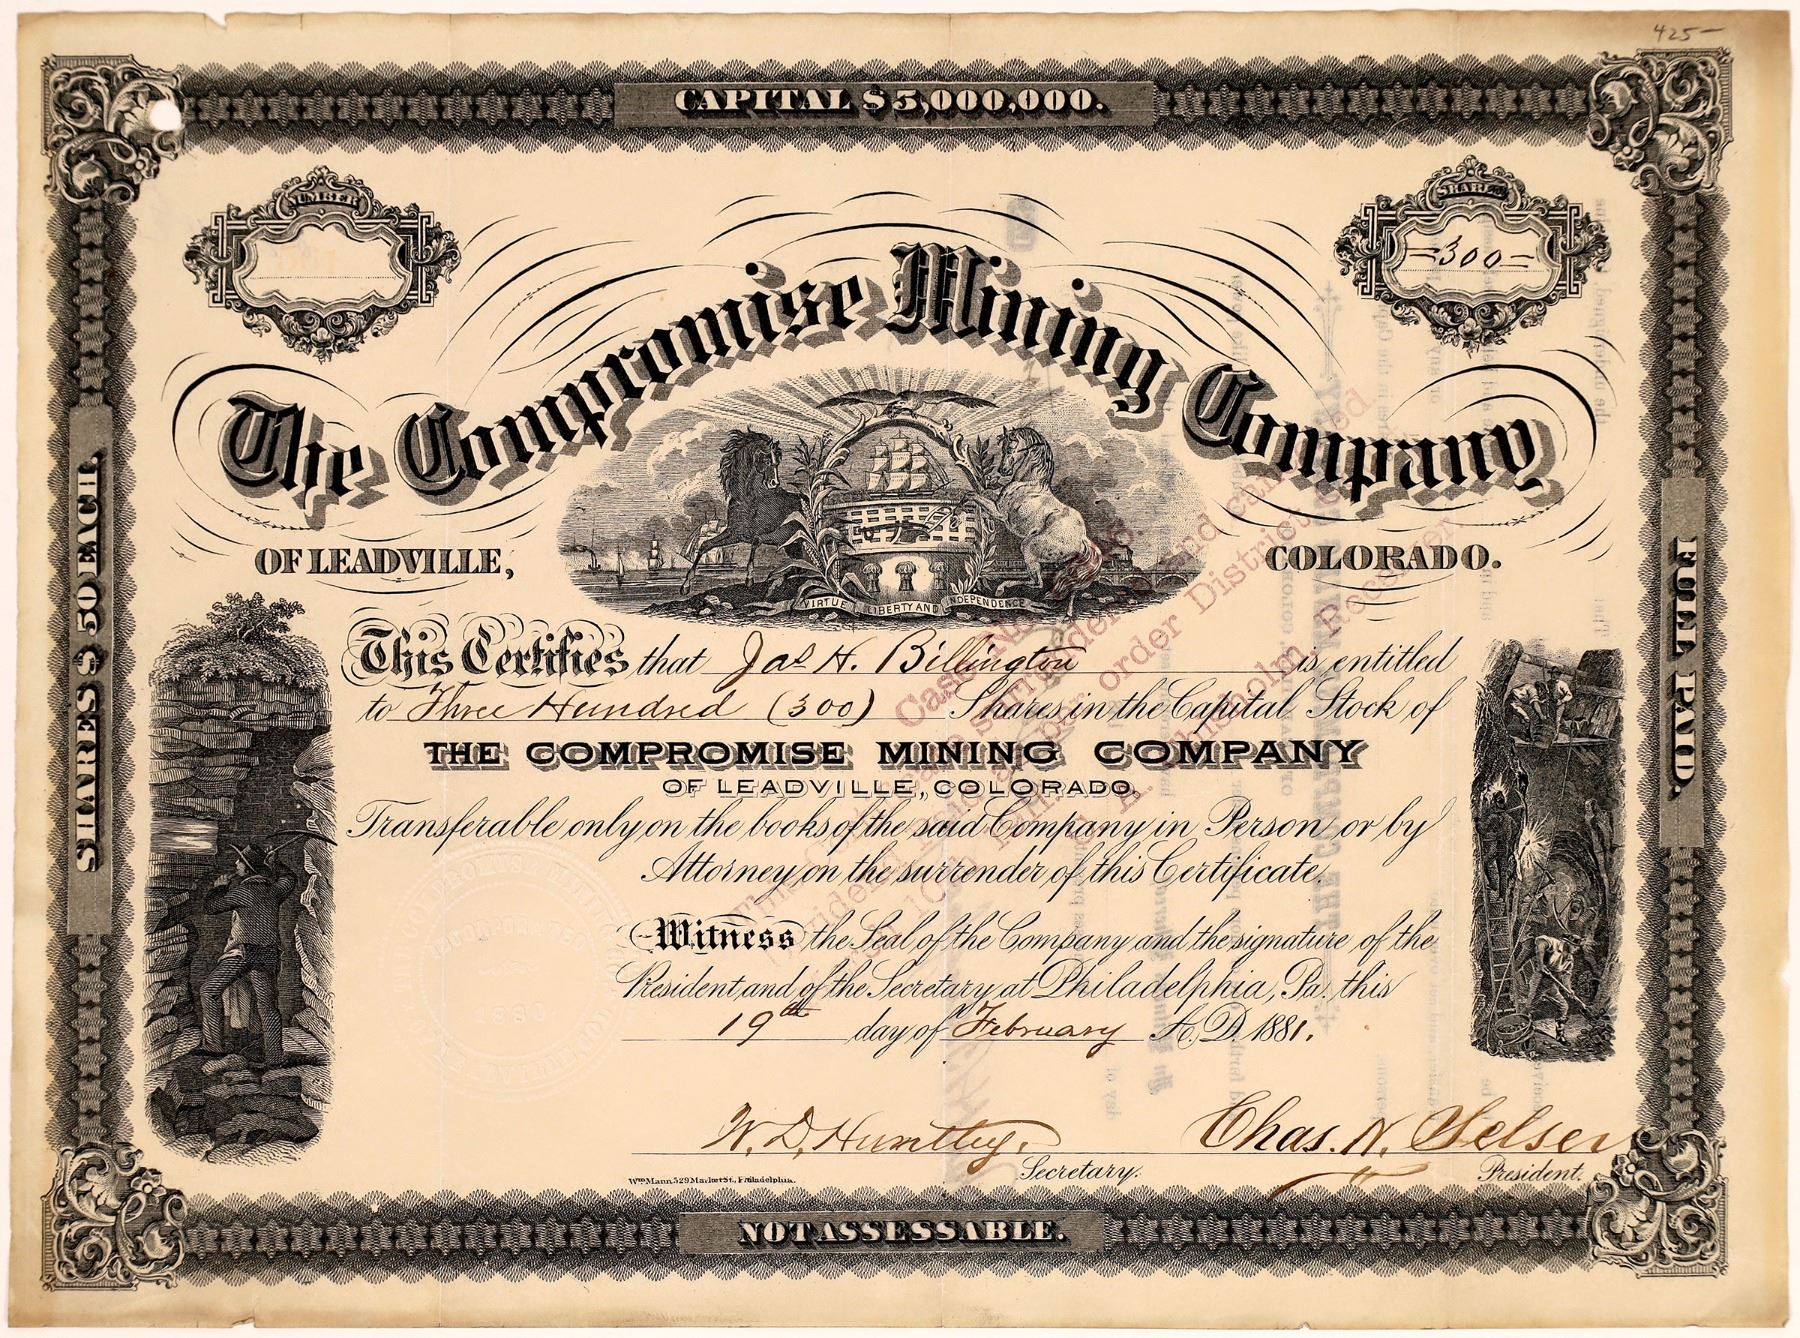 425-
CAPITAL $5,000,000.
NUMBER
SHARES
=300=
The Compromise Mining Company
OF LEADVILLE, COLORADO.
SHARES $50 EACH.
FULL PAID.
VIRTUE LIBERTY AND INDEPENDENCE
This Certifies that Jas H. Billington is entitled
to Three Hundred (300) Shares in the Capital Stock of
THE COMPROMISE MINING COMPANY
OF LEADVILLE, COLORADO,
Transferable only on the books of the said Company in Person or by
Attorney on the surrender of this Certificate.
Witness the Seal of the Company and the signature of the
President and of the Secretary at Philadelphia, Pa. this
19th day of February A.D. 1881.
INCORPORATED
1880
W. D. Huntley.
Secretary.
Chas. N. Selser
President.
Wm Mann, 529 Market St., Philadelphia.
NOT ASSESSABLE.